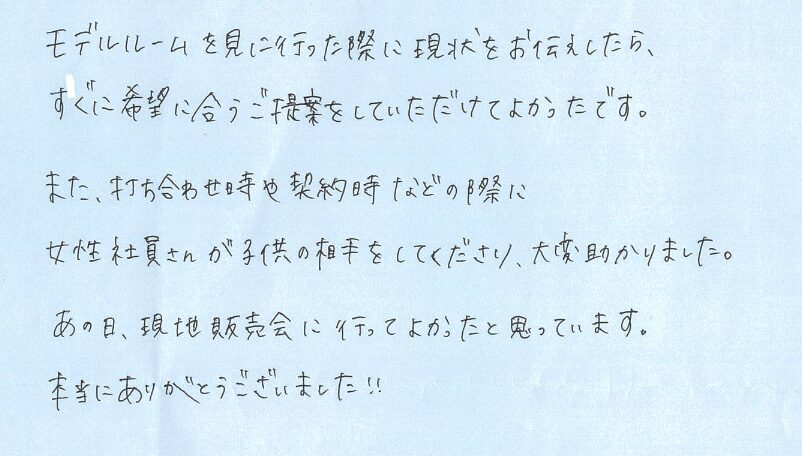 モデルルームを見に行った際に現状をお伝えしたら、
すぐに希望に合うご提案をしていただけてよかったです。
また、打ち合わせ時や契約時などの際に
女性社員さんが子供の相手をしてくださり、大変助かりました。
あの日、現地販売会に行ってよかったと思っています。
本当にありがとうございました!!